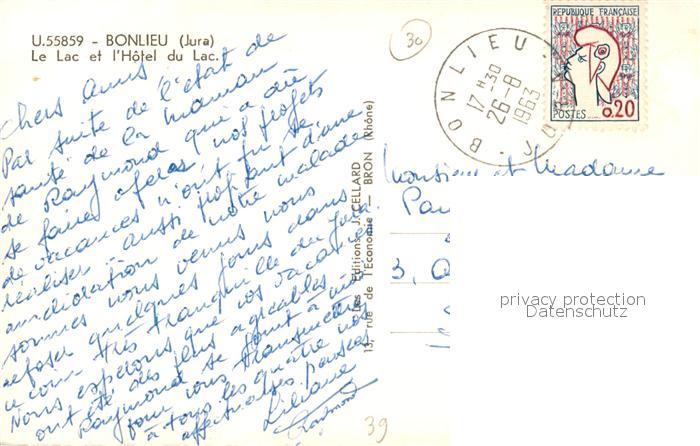 U.55859 - BONLIEU (Jura)
Le Lac et l'Hôtel du Lac.
30
BONLIEU - JU
17 H 30
26-8
1963
REPUBLIQUE FRANÇAISE
0,20
POSTES
Chers Amis
Par suite de l'état de
santé de la maman
de Raymond qui a dû
se faire opérer, nos projets
de vacances n'ont pu se
réaliser - aussi profitant d'une
amélioration de notre malade
sommes nous venus nous
reposer quelques jours dans
ce coin très tranquille du Jura.
Nous espérons que vos vacances
ont été des plus agréables.
Raymond se joint à moi
pour vous transmettre
à tous les quatre nos
affectueuses pensées
Liliane
Raymond
Les Editions J. CELLARD
13, rue de l'Economie — BRON (Rhône)
Monsieur et Madame
3,
39
privacy protection
Datenschutz